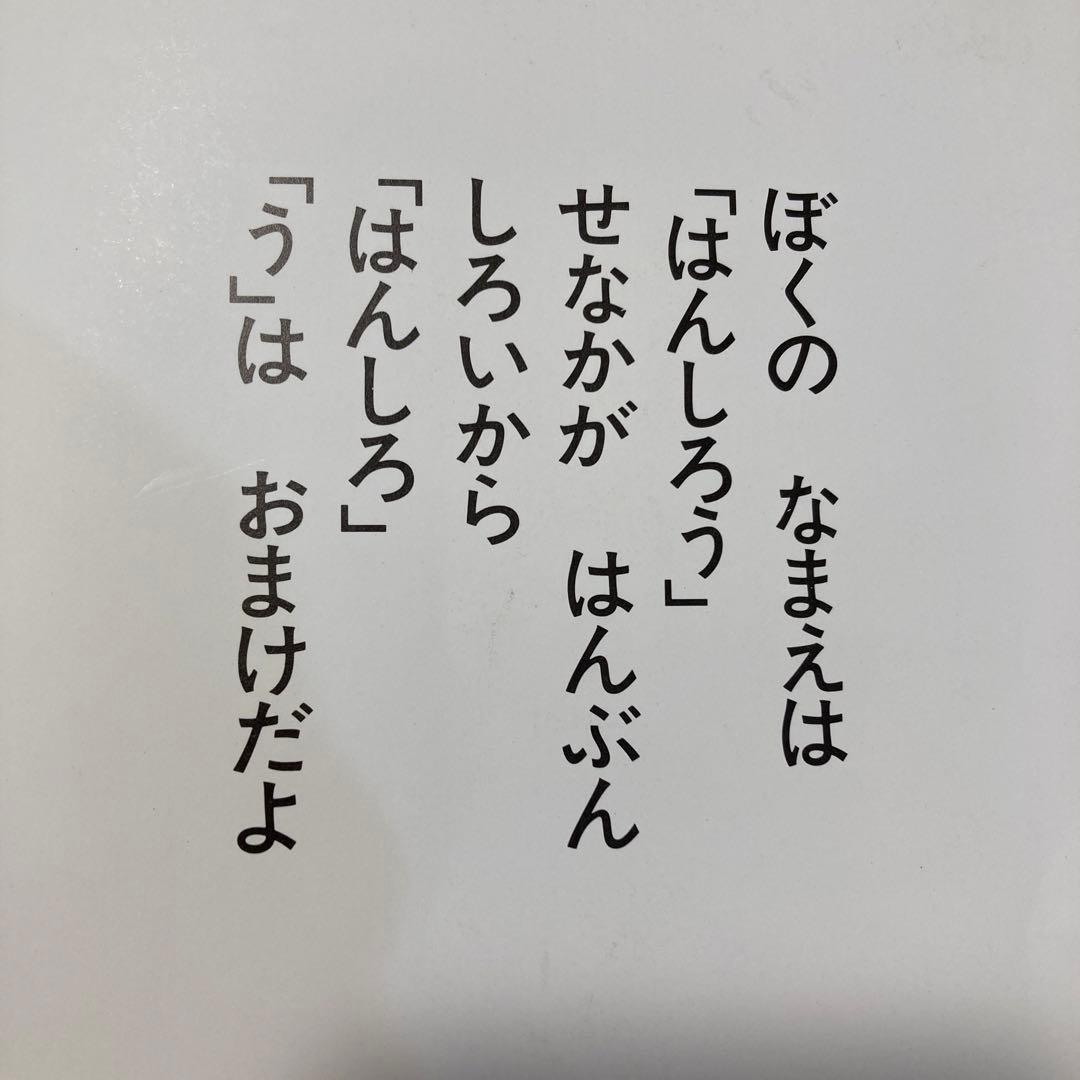 ぼくの　なまえは
「はんしろう」
せなかが　はんぶん
しろいから
「はんしろ」
「う」は　おまけだよ